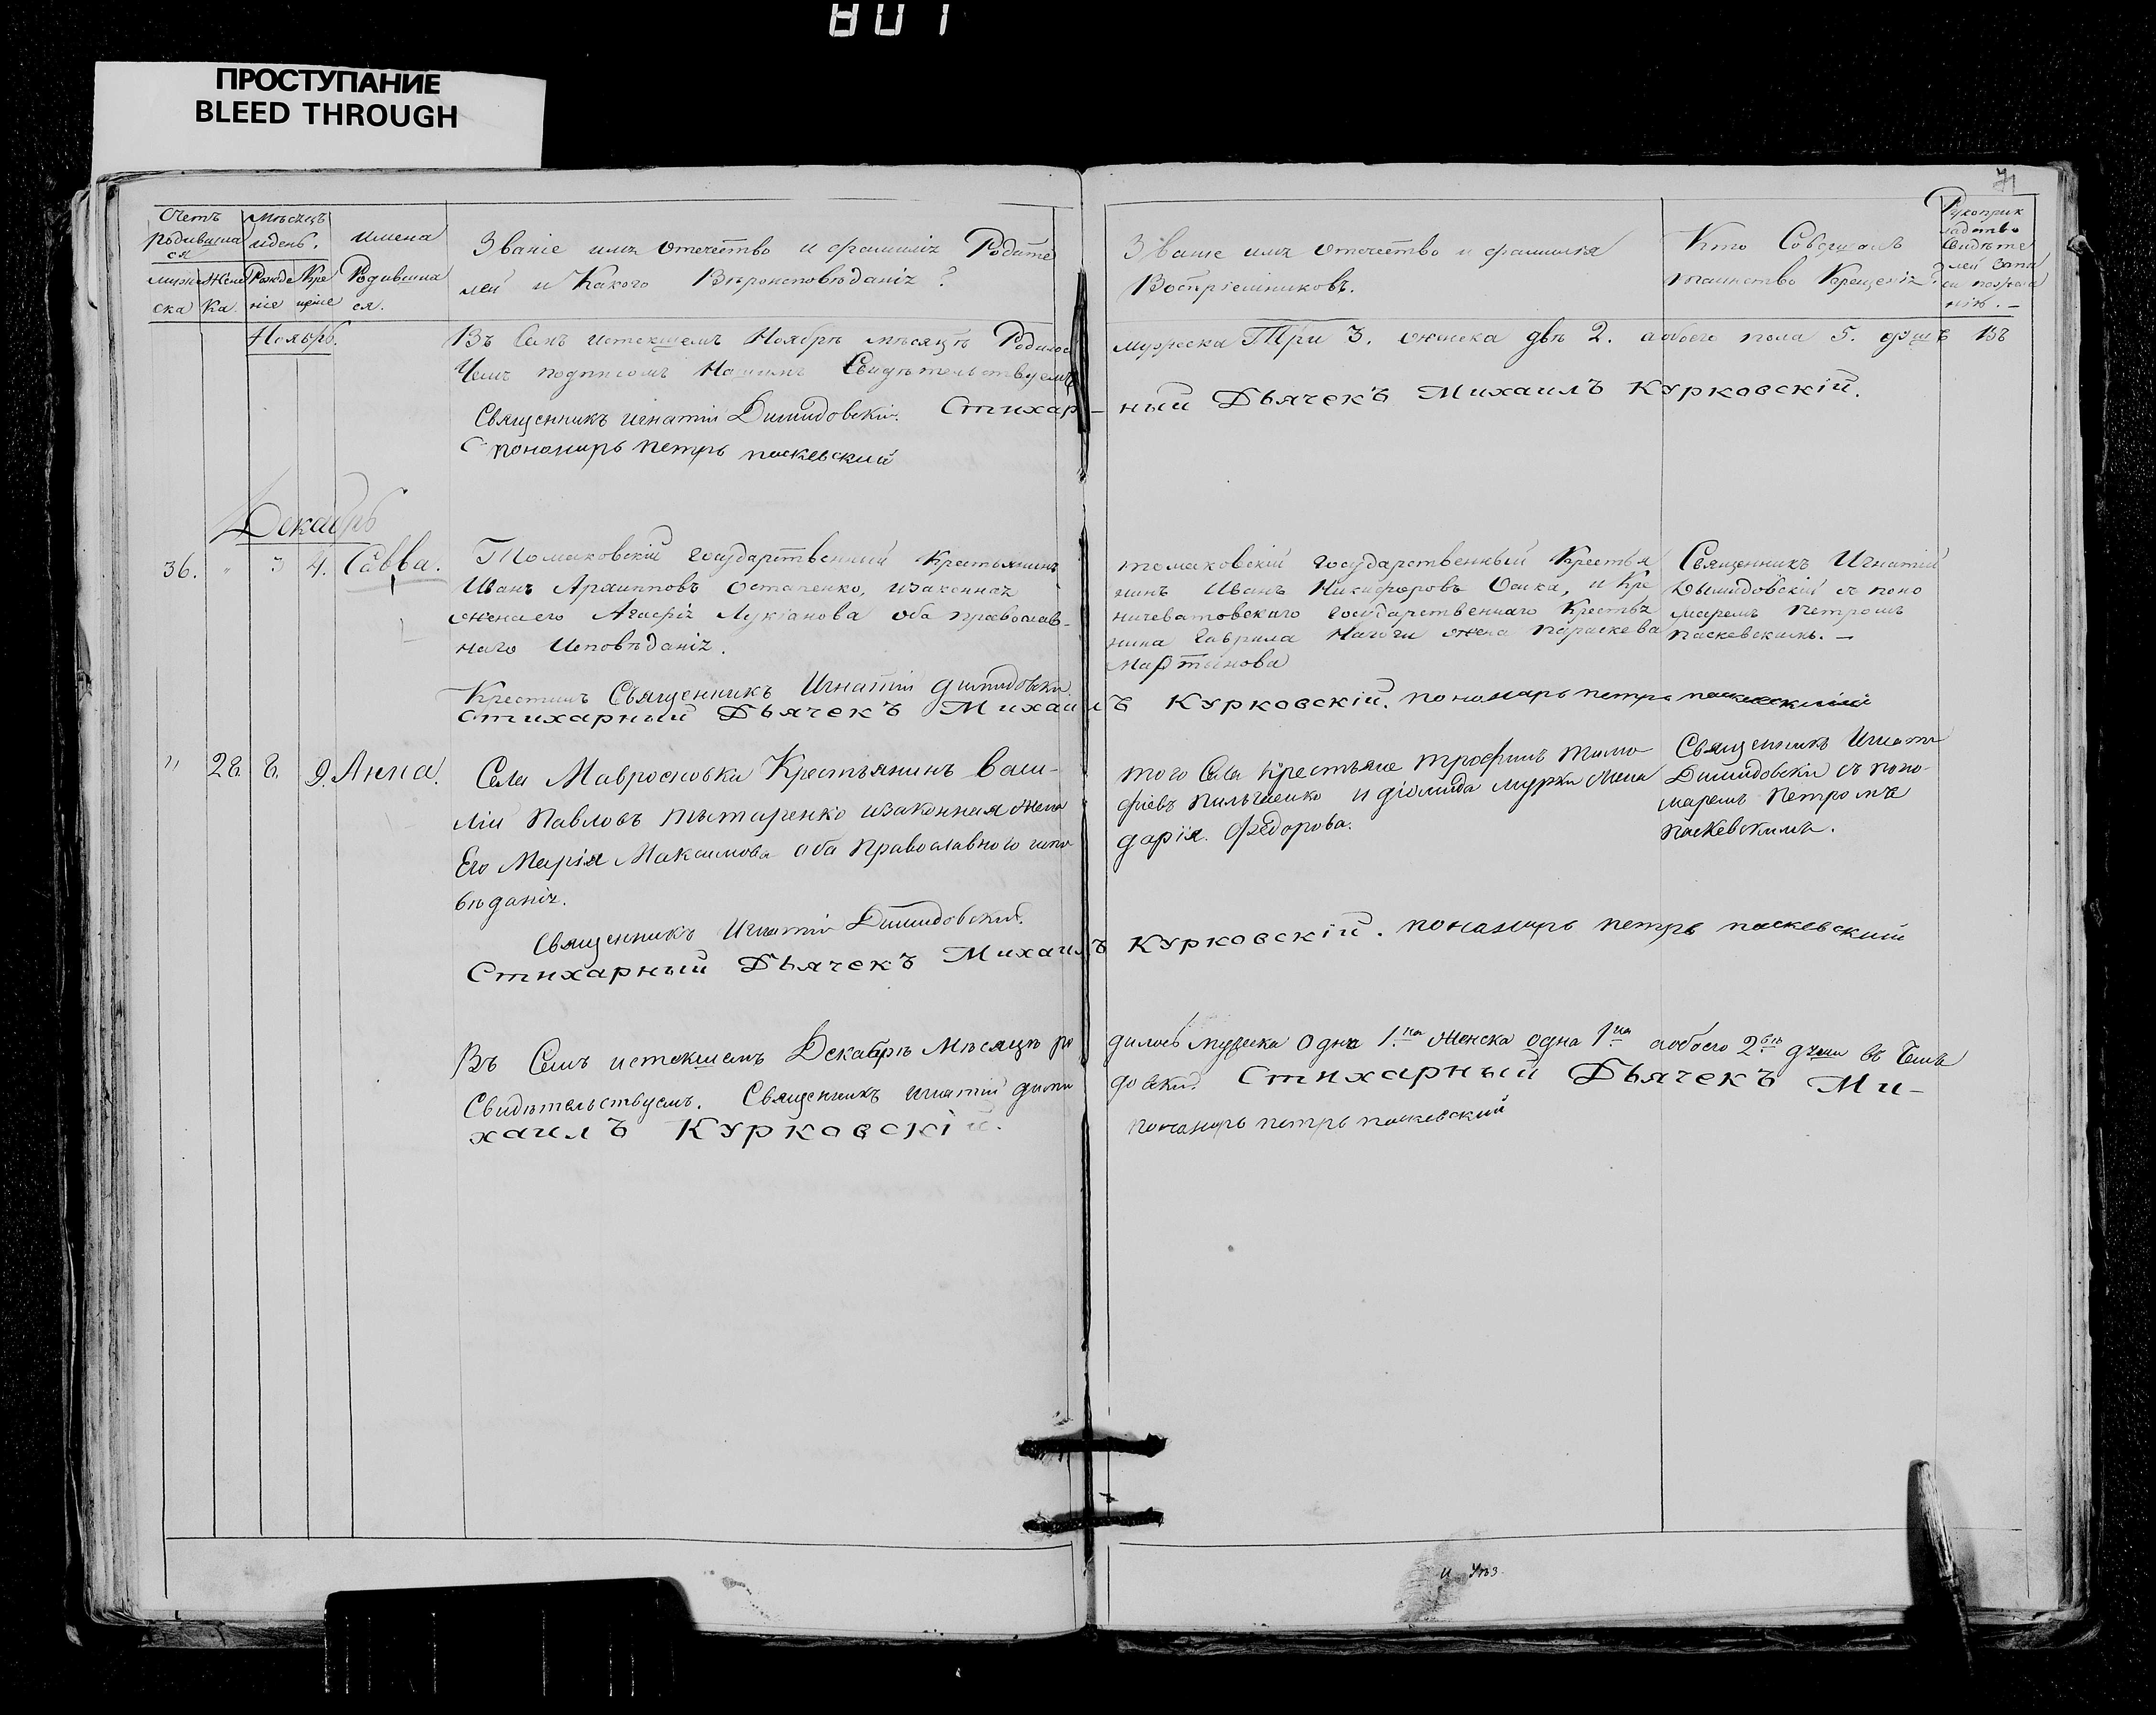 801
ПРОСТУПАНИЕ
BLEED THROUGH
71
Счетъ родившихся
Мѣсяцъ и день.
Имена Родившихся.
мужеска Женска
Рожденіе Крещеніе
Званіе имя Отечество и фамилія Родите
лей и Какого Вѣроисповѣданія?
Званіе имя Отечество и фамилія
Воспріемниковъ.
Кто Совершалъ
таинство Крещенія?
Рукоприкладство Свидѣтелей Записи по желанію. —
Ноябрь.
Въ Семъ истекшемъ Ноябрѣ мѣсяцѣ Родилось мужеска Три 3. женска двѣ 2. а обоего пола 5. душъ въ
Чемъ подписомъ Нашимъ Свидѣтельствуемъ
Священникъ Игнатій Димидовскій. Стихар-ный Дьячекъ Михаилъ Курковскій.
пономарь петръ паскевский
Декабрь
36. " 3 4. Савва.
Томаковскій государственный Крестьянинъ
Иванъ Архиповъ Остапенко, изаконная
жена его Агафія Лукіанова оба православ-
наго Исповѣданія.
томаковскій государственный Крестья
нинъ Иванъ Никифоровъ Осика, и Кра
ничеватовскаго государственнаго Крестья
нина Гаврила Нагоги жена параскева
Мартынова
Священникъ Игнатій
Дымидовскій съ поно
маремъ Петромъ
паскевскимъ. —
Крестилъ Священникъ Игнатій Димидовскій
Стихарный Дьячекъ Михаилъ Курковскій. пономарь петръ паскевский
" 28. 8. 9. Анна.
Села Мавроековки Крестьянинъ Васи-
лій Павловъ тытаренко изаконная жена
Его Марія Максимова оба Православного испо
вѣданія.
того Села крестьяне трофимъ тимо
фіевъ пильчиенко и діомида мурки жена
дарія. Федорова.
Священникъ Игнати
Димидовскій съ поно-
маремъ Петромъ
паскевскимъ.
Священникъ Игнатій Димидовский.
Стихарный Дьячекъ Михаилъ Курковскій. пономарь петръ паскевский
Въ Семъ истекшемъ Декабрѣ Мѣсяцѣ ро дилось мужеска одна 1.на женска одна 1на а обоего 2.вѣ души въ Чемъ
Свидѣтельствуемъ. Священникъ Игнатій дими довский. Стихарный Дьячекъ Ми-
хаилъ Курковскій. пономарь петръ паскевский